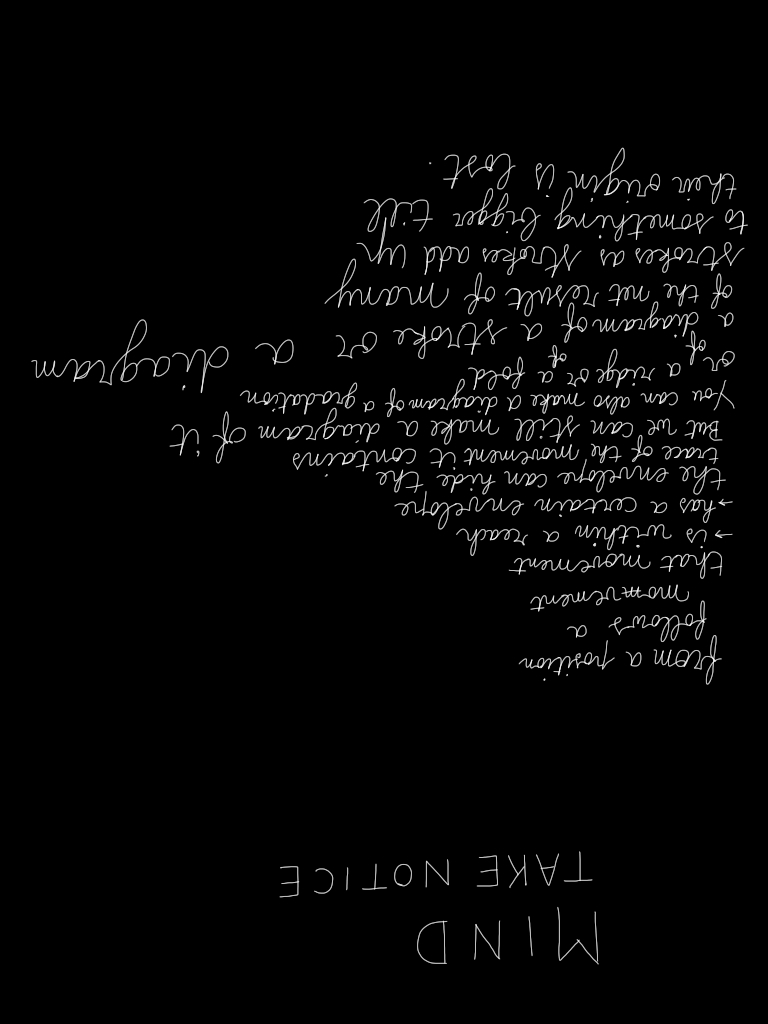 MIND
TAKE NOTICE
from a position
follows a
movement
that movement
→ is within a reach
→ has a certain envelope
the envelope can hide the
trace of the movement it contains
But we can still make a diagram of it
You can also make a diagram of a gradation
or of a ridge or of a fold
a diagram of a stroke or a diagram
of the net result of many
strokes as strokes add up
to something bigger till
their origin is lost.